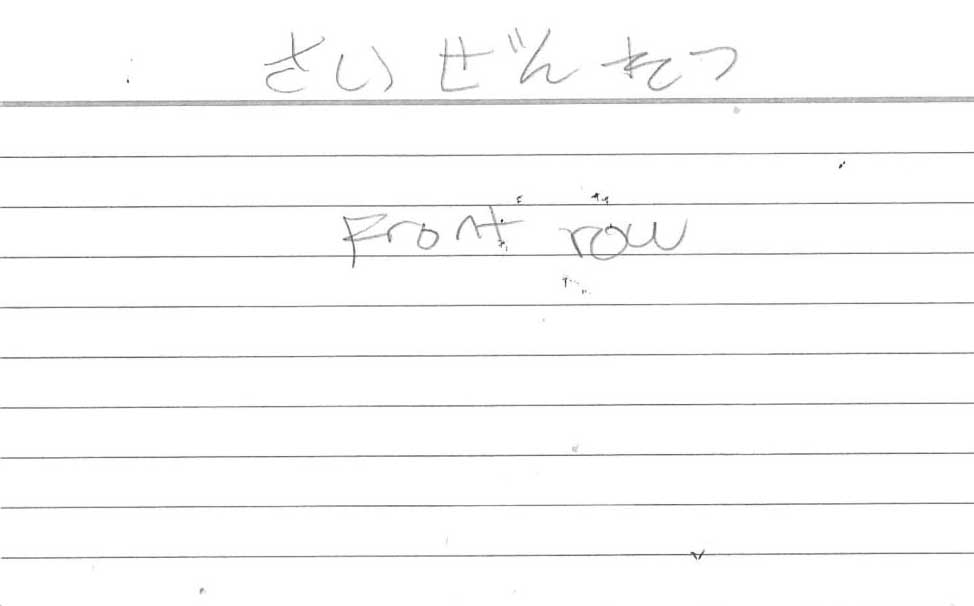 さいぜんれつ
Front row